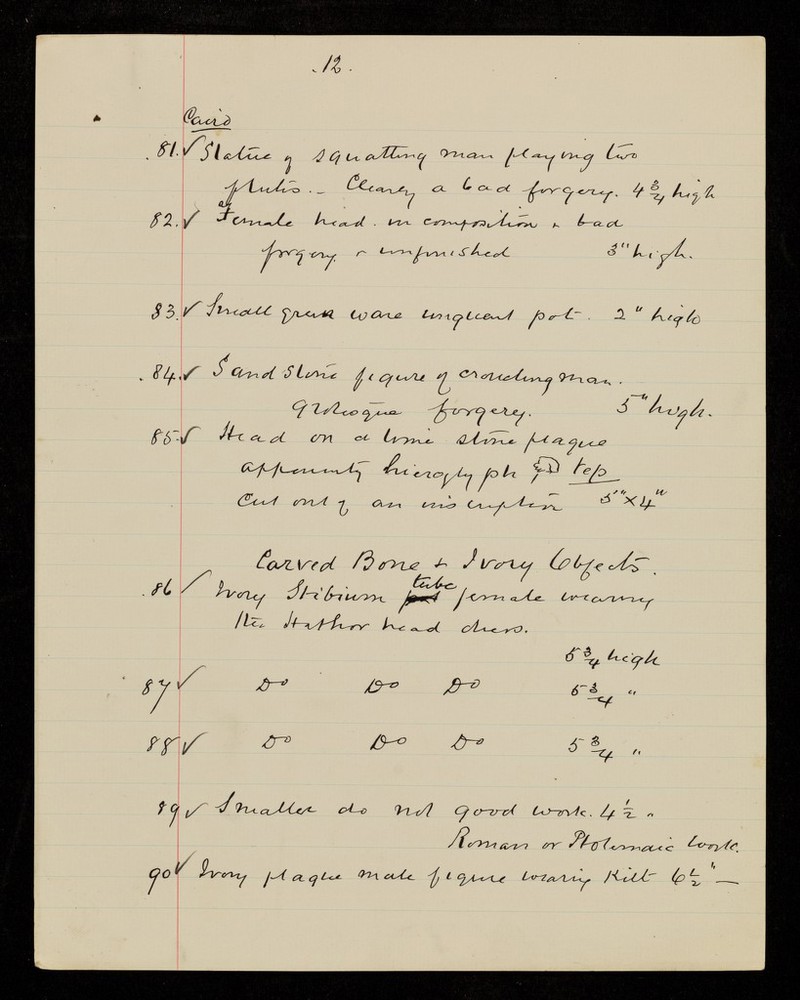 .12.
Caird
.81.✓ Statue of squatting man playing two
flutes.- Clearly a bad forgery. 4 3/4 high
82.✓ Female head. in composition & bad
forgery & unfinished 3" high.
83.✓ Small green ware unguent pot. 2" high
.84.✓ Sandstone figure of crouching man.
Grotesque forgery. 5" high.
85.✓ Head on a lime stone plaque
apparently hieroglyph tep
cut out of an inscription 5" x 4"
Carved Bone & Ivory Objects.
.86 ✓ Ivory Stibium tube female wearing
the Hathor head dress.
5 3/4 high
87 ✓ Do Do Do 5 3/4 "
88 ✓ Do Do Do 5 3/4 "
89 ✓ Smaller do not good work. 4 1/2 "
Roman or Ptolemaic work.
90 ✓ Ivory plaque male figure wearing Kilt 6 1/2" —